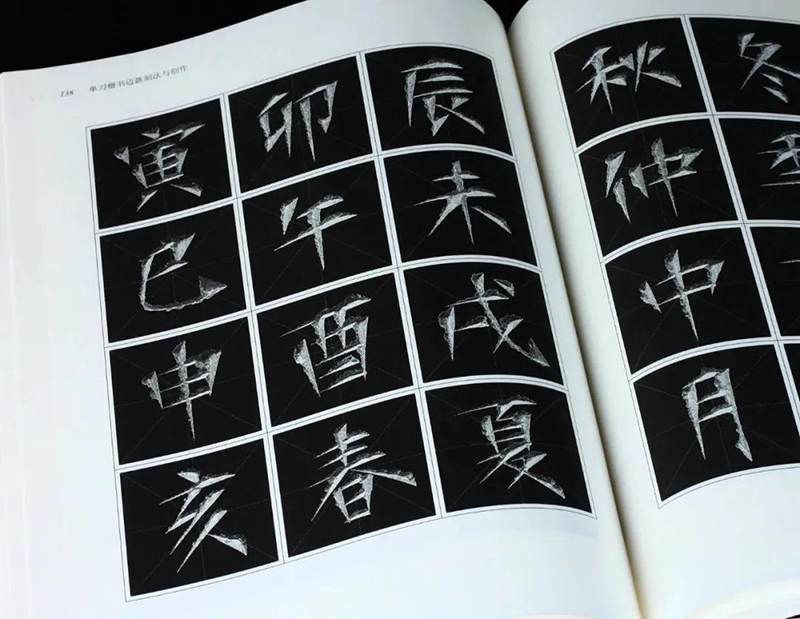 138 单刀楷书边款刻法与创作
寅卯辰
巳午未
申酉戌
亥春夏
秋冬
仲季
中
月